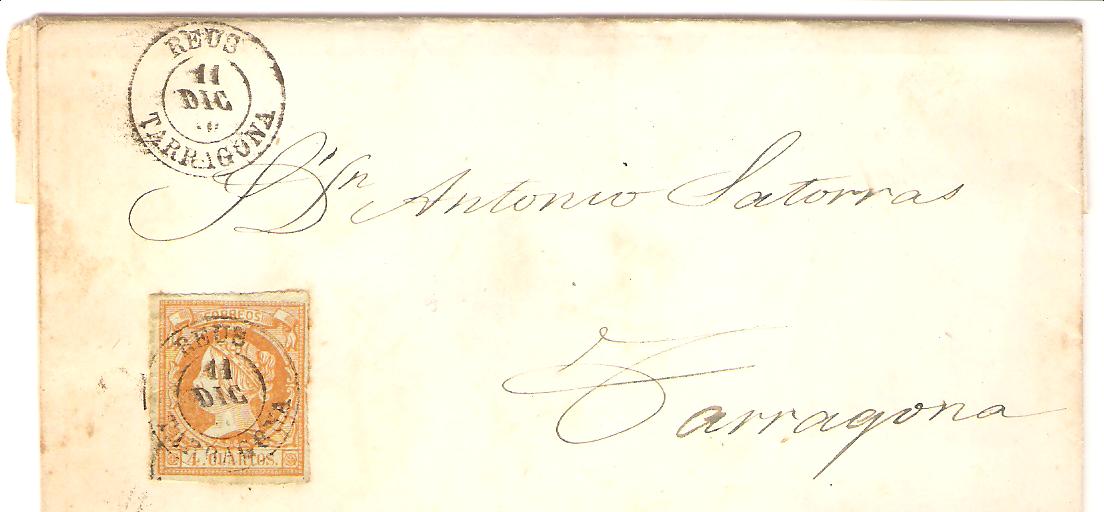 REUS
11
DIC
TARRAGONA
Dn Antonio Satorras
CORREOS
REUS
11
DIC
TARRAGONA
4 CUARTOS.
Tarragona